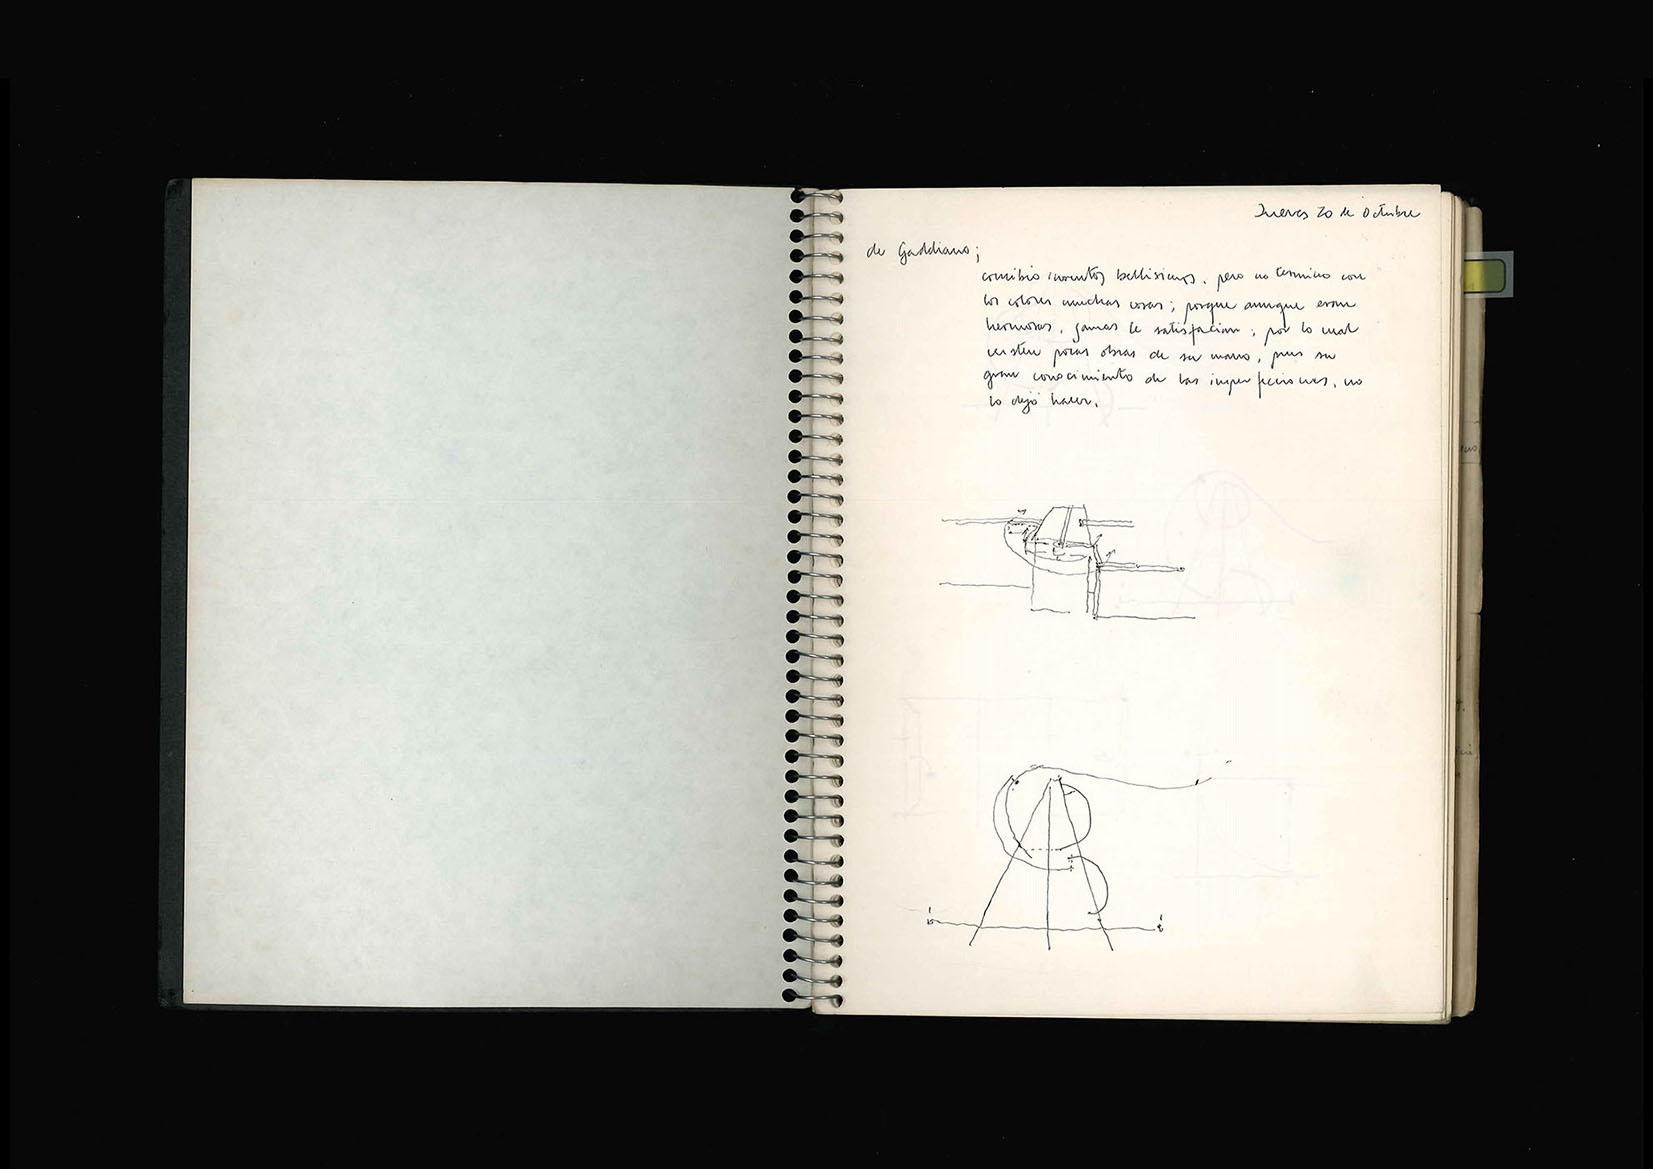 Jueves 20 de Octubre
de Gaddiano;
concibio inventos bellisimos, pero no termino con
los colores muchas cosas; porque aunque eran
hermosas, jamas le satisfacian; por lo cual
existen pocas obras de su mano, pues su
gran conocimiento de las imperfecciones, no
lo dejó hacer.